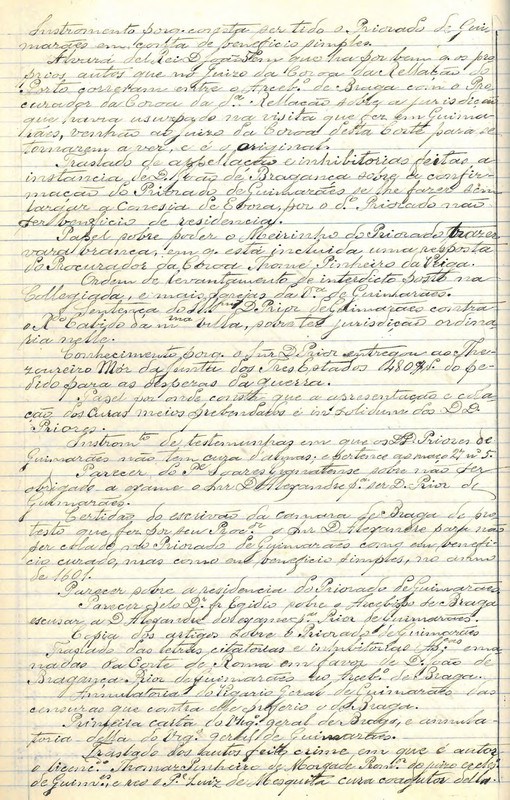 Instromento porq. consta ser tido o Priorado de Gui-
marães em conta de beneficio simples.
Alvará del Rei D. em que ha por bem q. os pro
prios autos que no juizo da Coroa da Rellação do
Porto correram entre o Arceb.º de Braga com o Pro
curador da Coroa da d.ª Rellação sobre a jurisdição
que havia usurpado na visita que fez em Guima-
rães, venhão ao juizo da Coroa desta Corte para se
tornarem a ver, e é o original.
Traslado de appellação e inhibitorias feitas a
instancia de D. João de Bragança sobre a confir-
mação do Priorado de Guimarães se lhe fazer sem
largar a Conesia de Evora, por o d.º Priorado não
ser beneficio de residencia.
Papel sobre poder o Meirinho do Priorado trazer
vara branca, em q. está incluida uma resposta
do Procurador da Coroa Thomé Pinheiro da Veiga.
Ordem de levantamento de interdicto posto na
Collegiada, e mais Igrejas da V.ª de Guimarães.
Sentença do D. Prior de Guimarães contra
o R.do Cabido da m.ma villa, sobre ter jurisdição ordina
ria nelle.
Conhecimento porq. o Snr. D. Prior entregou ao The-
zoureiro Mór da Junta dos Tres Estados 480 do pe-
dido para as despezas da guerra.
Papel por onde consta que a apresentação e cola
ção dos Curas meios prebendados é in solidum dos D. D.
Priores.
Instrom.to de testemunhas em que os D. Priores de
Guimarães não tem cura d'almas; e pertence ao maço 2º nº 5.
Parecer do P.e Soares Granatense sobre não ser
obrigado a exame o Snr. D. Alexandre p.ª ser D. Prior de
Guimarães.
Certidão do escrivão da camara de Braga do pro
testo que fez por seu Proc.or o Snr. D. Alexandre para não
ser colado no Priorado de Guimarães como em benefi-
cio curado, mas como em beneficio simples, no anno
de 1601.
Parecer sobre a residencia do Priorado de Guimarães.
Parecer pelo D.r fr. Egidio sobre o Arcebispo de Braga
escusar a D. Alexandre do exame p.ª Prior de Guimarães.
Copia dos artigos sobre o Priorado de Guimarães
Traslado das letras citatorias e inhibitorias ema
nadas da Corte de Roma em favor de D. João de
Bragança Prior de Guimarães ao Arceb.º de Braga.
Annulatoria do Vigario Geral de Guimarães das
censuras que contra elle proferio o de Braga.
Primeira carta do Vig.º geral de Braga, e annula-
toria della do Vig.º geral de Guimarães.
Traslado dos autos feito crime em que é autor
o licenc.do Thomaz Pinheiro de Morgade Prom.or do juizo eccles.
de Guim.es, e reo o P.e Luiz de Mesquita cura coadjutor della.